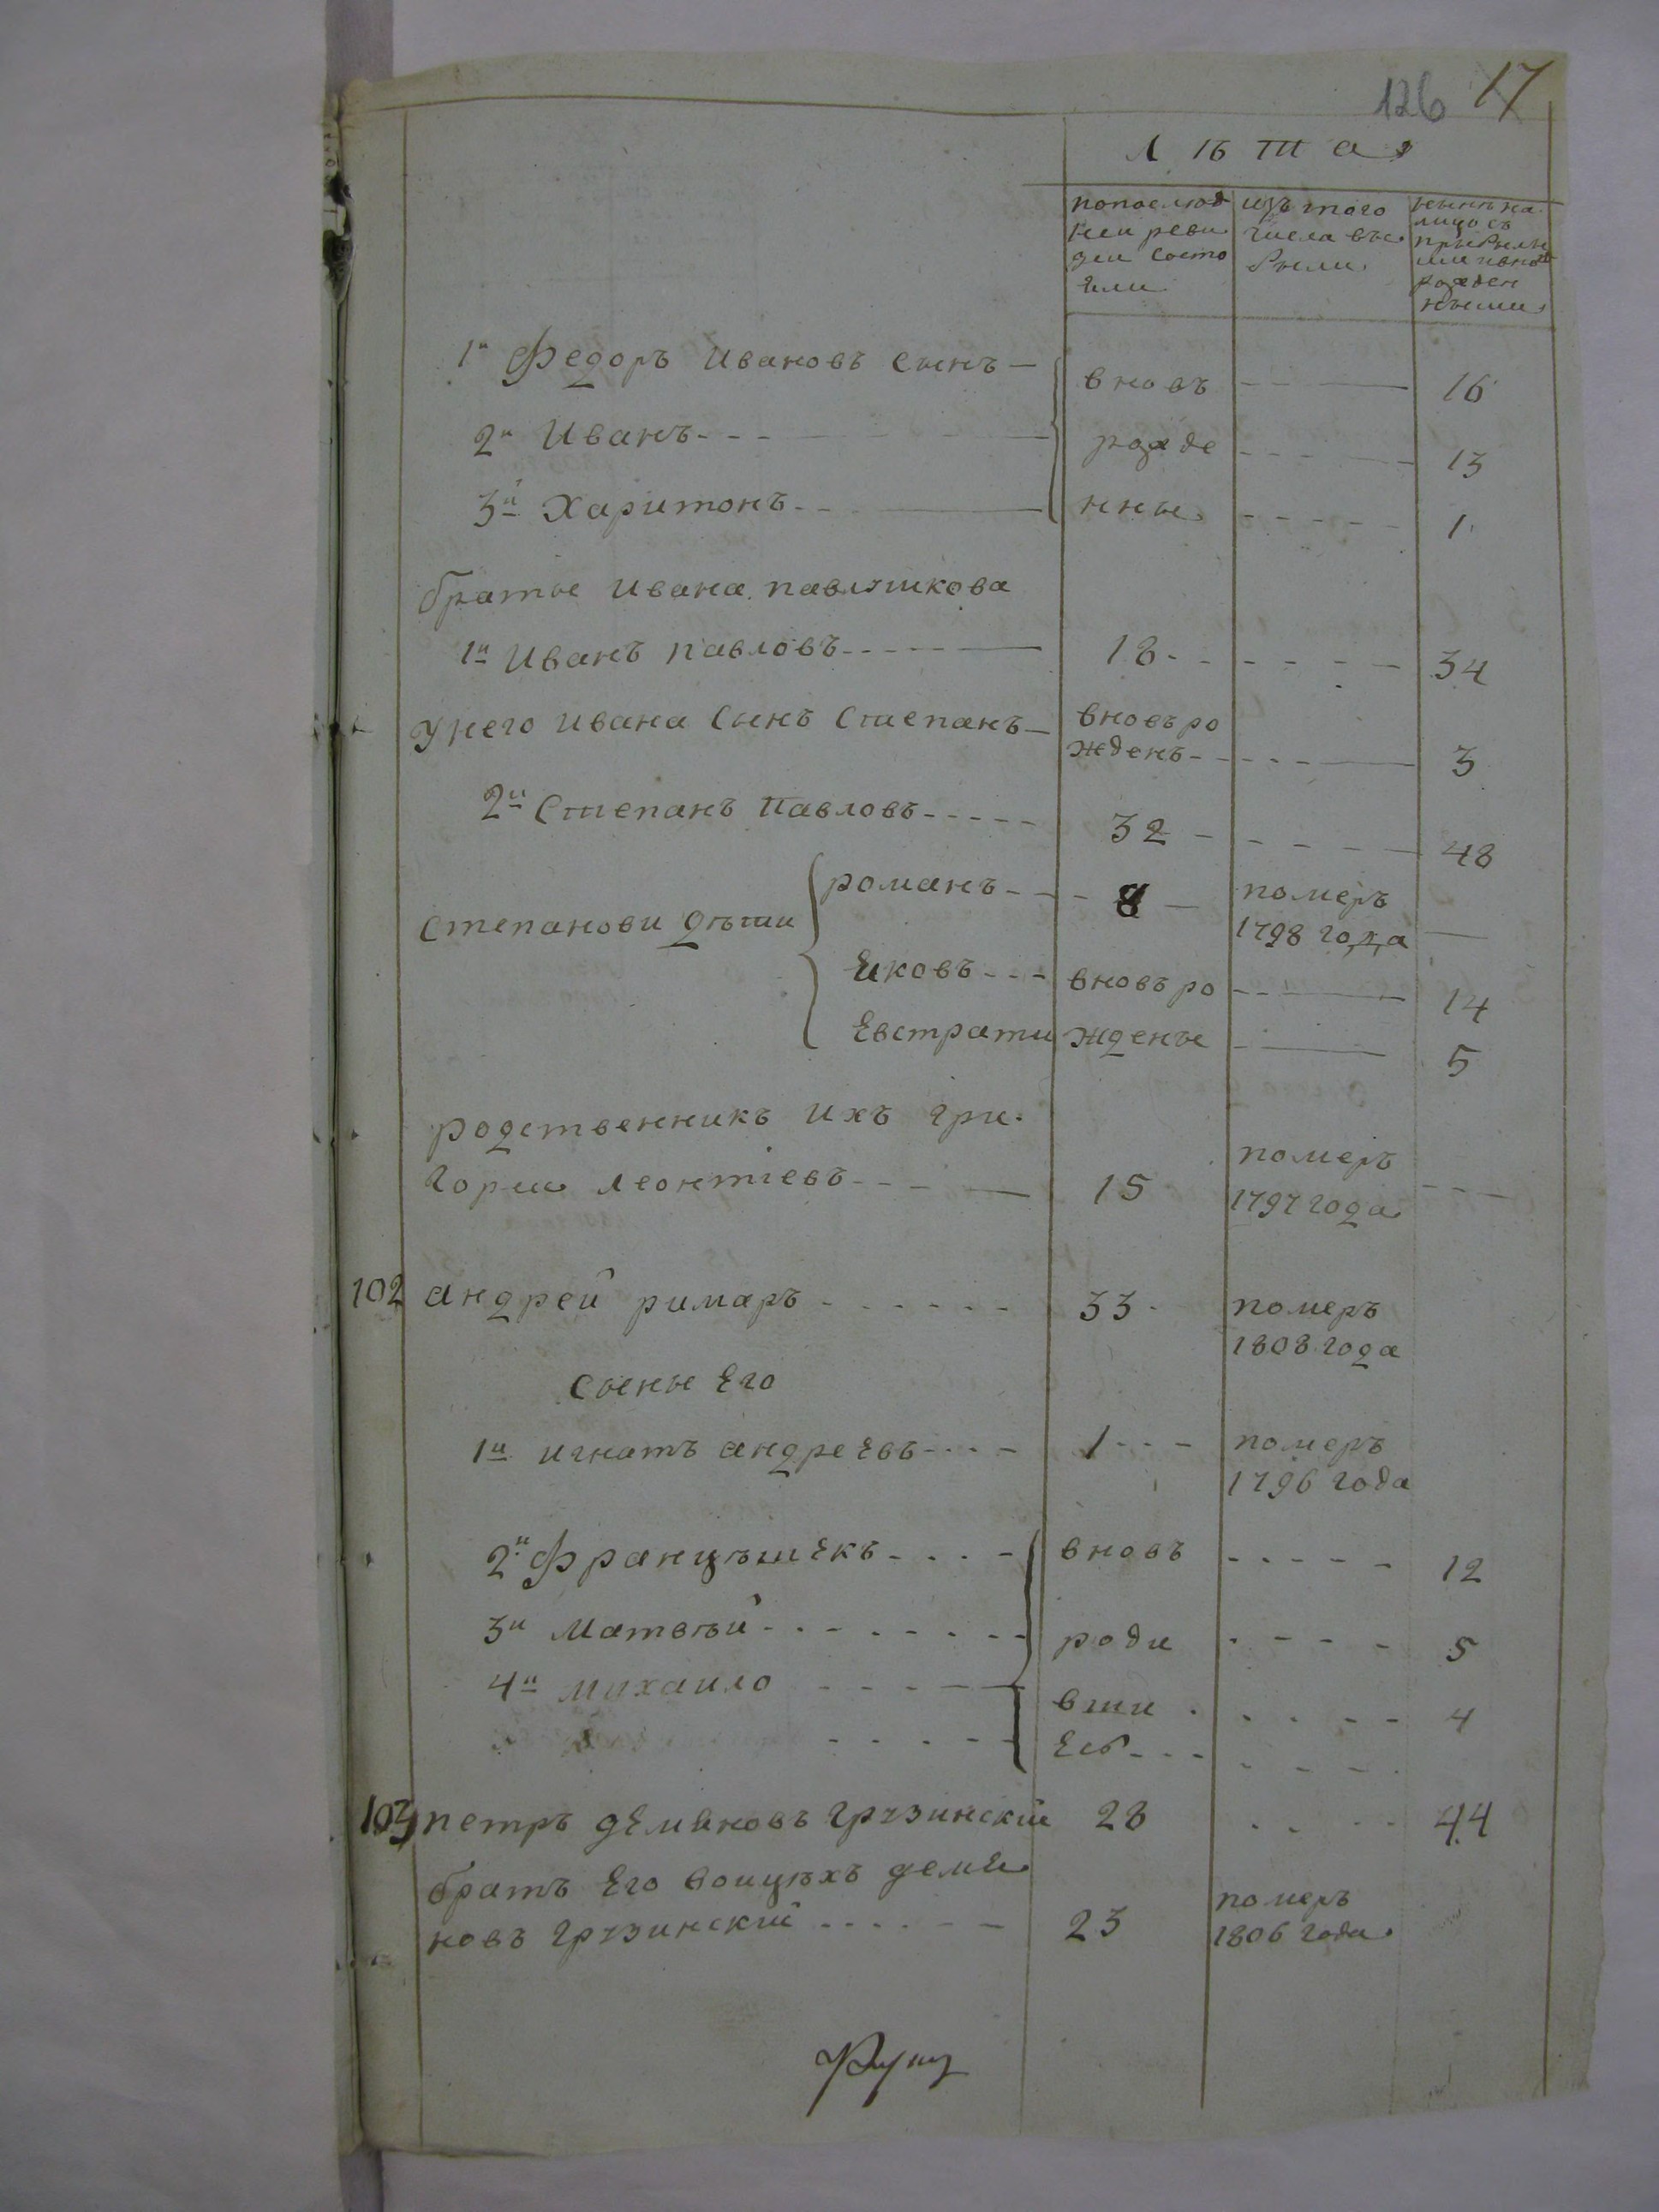 126 17
Лѣта
попослѣд ней реви зеи состо яли
изъ того числа вы были
нынѣ на лицо съ прибылы ми и вно рожден ными
1й Федоръ Ивановъ сынъ — вновь 16
2й Иванъ рожде 13
3й Харитонъ нны 1
братье Ивана павлушкова
1й Иванъ павловъ 18 34
У него Ивана Сынъ Степанъ — вновь ро
жденъ 3
2й Степанъ павловъ 32 48
романъ 8 померъ
Степанови дѣти 1798 года
Яковъ вновь ро 14
Евстрати ждены 5
родственникъ ихъ гри
гореи леонтіевъ 15 померъ
1797 года
102 андрей римаръ 33 померъ
1808 года
сыны Его
1й игнатъ андреЕвъ 1 померъ
1796 года
2й ФранцышЕкъ вновь 12
3й Матвѣй роди 5
4й михаило вши 4
Есь
103 петръ дЕмяновъ грузинскій 28 44
братъ Его воицѣхъ демя
новъ грузинский 23 померъ
1806 года